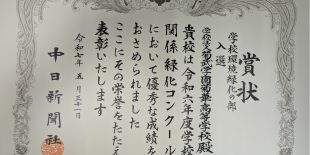 賞状
学校環境緑化の部
入選
学校法人菊武学園菊華高等学校殿
貴校は令和六年度学校
関係緑化コンクール
において優秀な成績を
おさめられました
ここにその栄誉をたたえ
表彰いたします
令和七年五月三十一日
中日新聞社